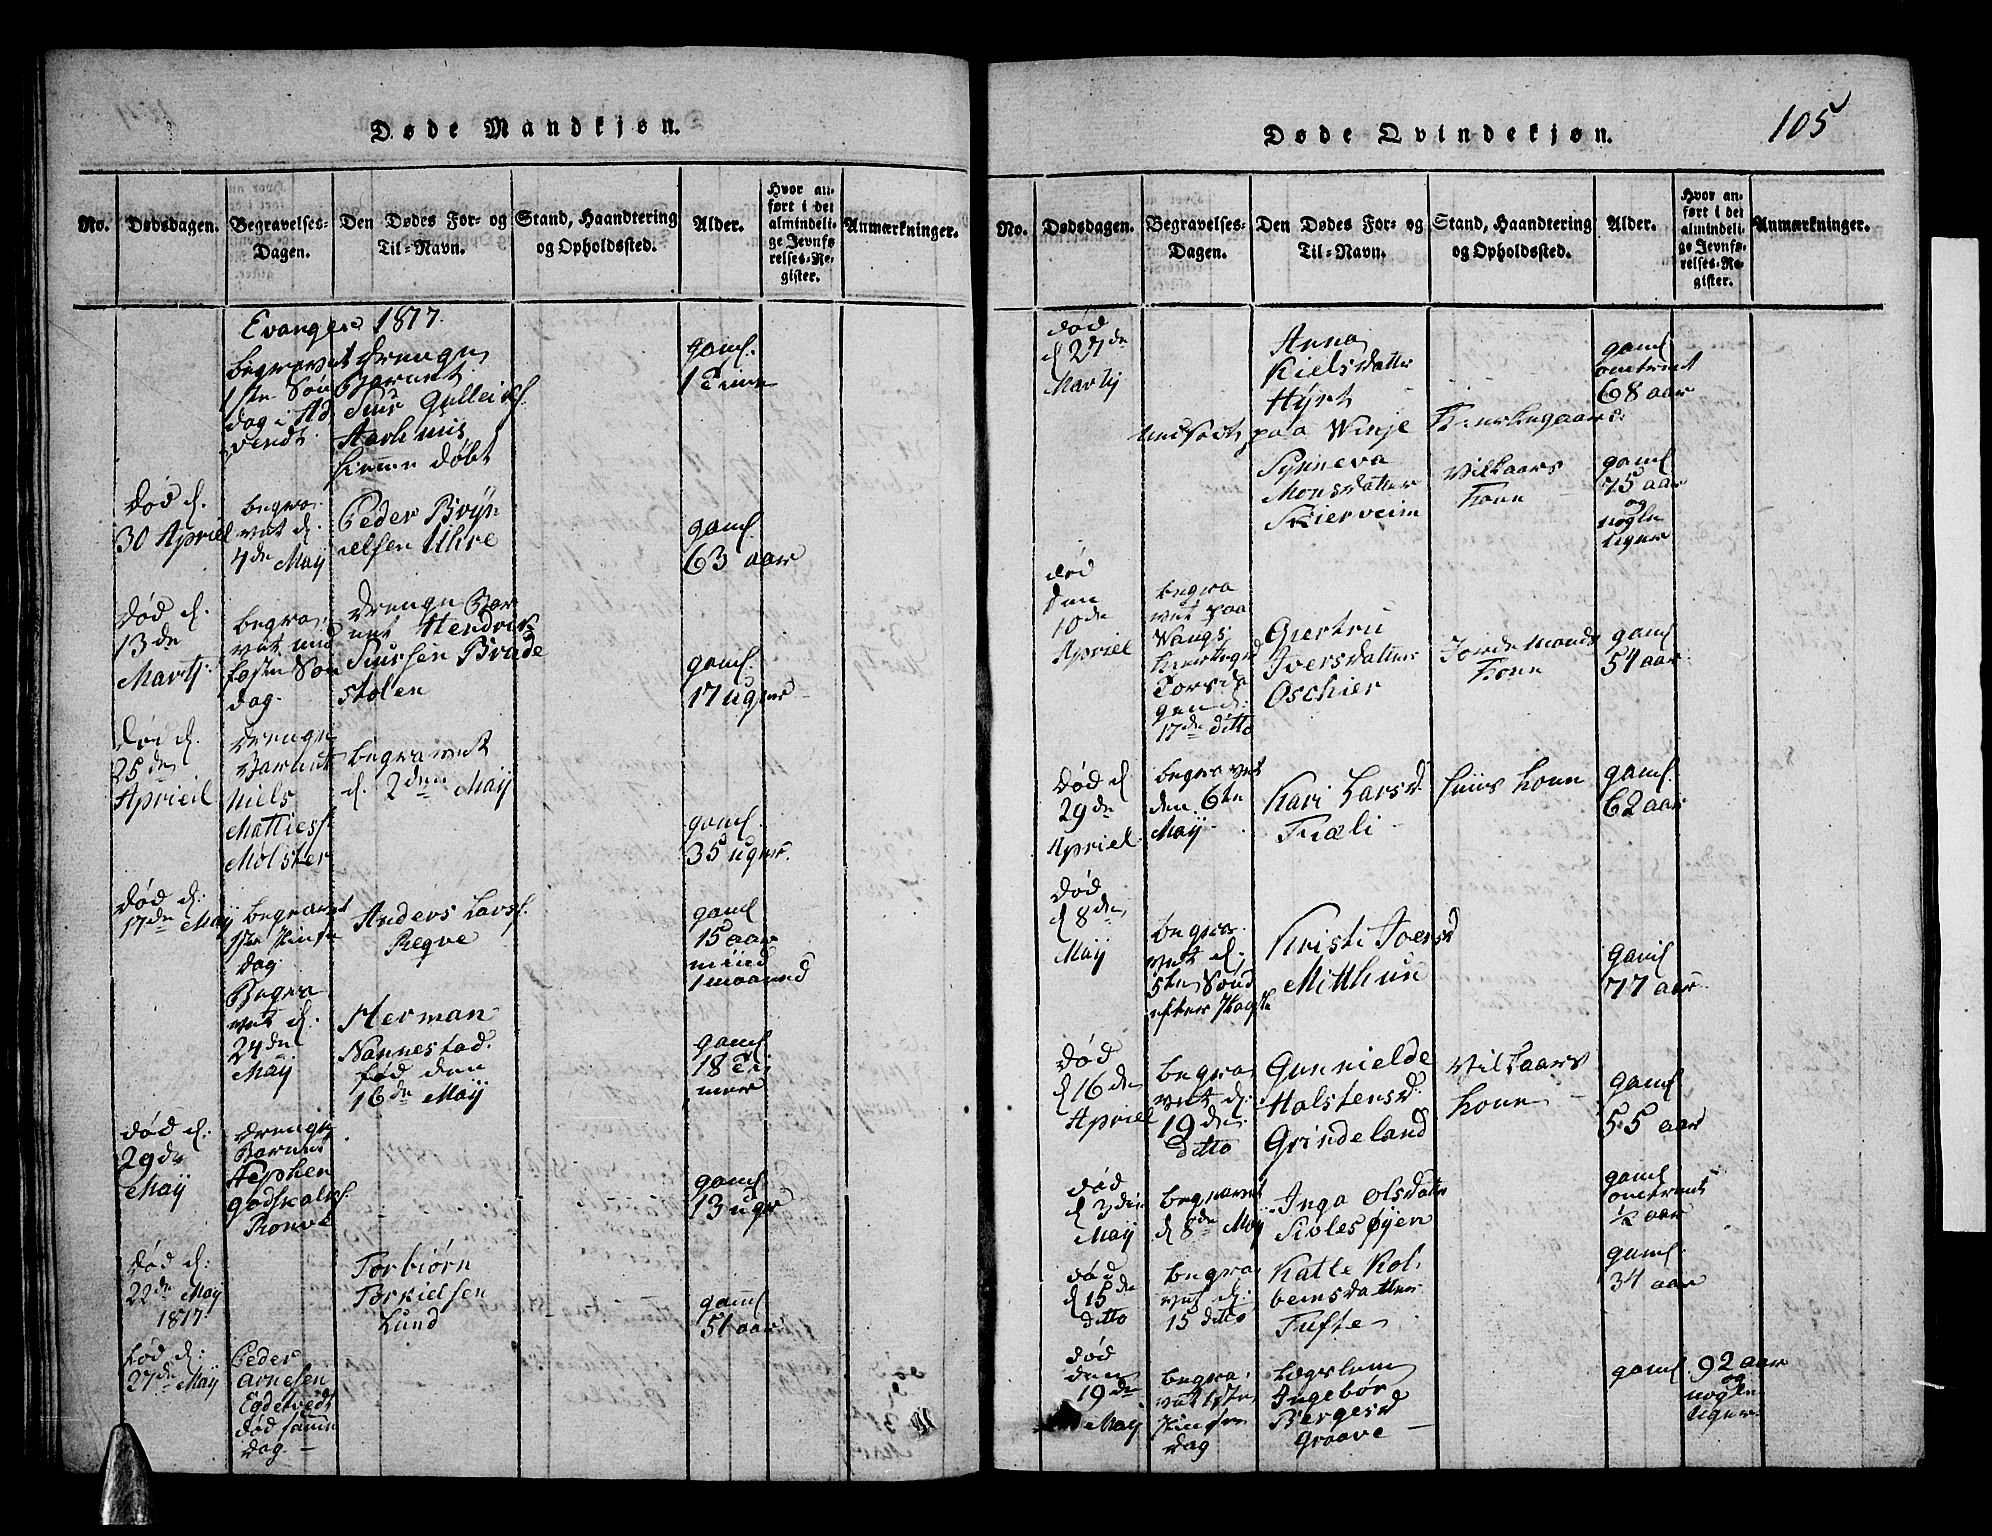 Døde Mandkjøn.
No.
Dødsdagen.
Begravelses-
Dagen.
Den Dødes For- og
Til-Navn.
Stand, Haandtering
og Opholdssted.
Alder.
Hvor an-
ført i det
almindeli-
ge Jevnfø-
relses-Re-
gister.
Anmærkninger.
Evanger 1817.
begravet
1ste Søn
dag i Ad
vendt.
Drenge
Barnet
Siur Gulleiks
Aarhuus
hiemme døbt
gaml.
1 Time
Død d.
30 Apriel
begra-
vet d.
4de Maÿ
Peder Brÿn
ielsen Uhre
gaml.
63 aar
Død d.
13de
Martj.
begra-
vet mid
faste Søn
dag.
Drenge Bar
net Hendrik
Siursen Brade
stolen
gaml.
17 uger
Død d.
25de
Aprieil
Drenge
Barnet
Niels
Mattiess.
Mølster
begravet
d. 2den Maÿ
gaml.
35 uger.
Død d:
17de Maÿ
begravet
1ste Pintse
dag
Anders Larss.
Reqve
gaml
15 aar
mind
1 maaned
Begra
vet d.
24de
Maÿ
Herman
Nannestad.
fød den
16de Maÿ
gaml.
18 Ti
mer
død d:
29de
Maÿ
Drenge
Barnet
Stephen
Godskalks.
Ronve
gaml
13 uger
Død d:
22de Maÿ
1817.
Torbiørn
Torkielsen
Lund
gaml
51 aar
fød d:
27de Maÿ
Peder
Arnesen
Egdetvedt
død samme
dag.
Døde Qvindekjøn.
105
No.
Dødsdagen.
Begravelses-
Dagen.
Den Dødes For- og
Til-Navn.
Stand, Haandtering
og Opholdssted.
Alder.
Hvor an-
ført i det
almindeli-
ge Jevnfø-
relses-Re-
gister.
Anmærkninger.
død
d 27de
Martij
Anna
Kielsdatter
Hÿrt
indsadt paa Winje Kirkegaard:
gaml
omtrent
68 aar
Synneva
Monsdatter
Skierveim
Vilkaars
Kone
gaml
75 aar
og
nogle
Uger
død
den
10de
Apriel
begra
vet paa
Wangs
Kirkegrd
Torsda
gen d:
17de ditto
Giertru
Iversdatter
Oschier
Jordemoder
Kone
gaml
54 aar.
Død d
29de
Apriel
begravet
den 6te
Maÿ
Kari Larsd
Træli
Huus Kone
gaml.
62 aar
død
d 8de
Maÿ
begra-
vet d:
5te Sønd
efter Paaske
Kristi Joensd
Mitthun
gaml
77 aar
død
d 16de
Apriel
begra
vet d:
19de
ditto
Gunnielde
Halstensd.
Grindeland
Vilkaars
Kone
gaml
55 aar
død
d 3die
Maÿ
begravet
d 8de Maÿ
Inga Olsdatr
Siølesøÿen
gaml
omtrent
½ aar
død
d 15de
ditto
begra
vet d:
15 ditto
Katte Kol-
bensdatter
Tufte
gaml.
34 aar
død
den
19de
Maÿ
begra-
vet 1ste
Pintse
dag
Lægslem
Ingebør
Bergesd
Graave
gaml 92 aar
og
nogle
Uger